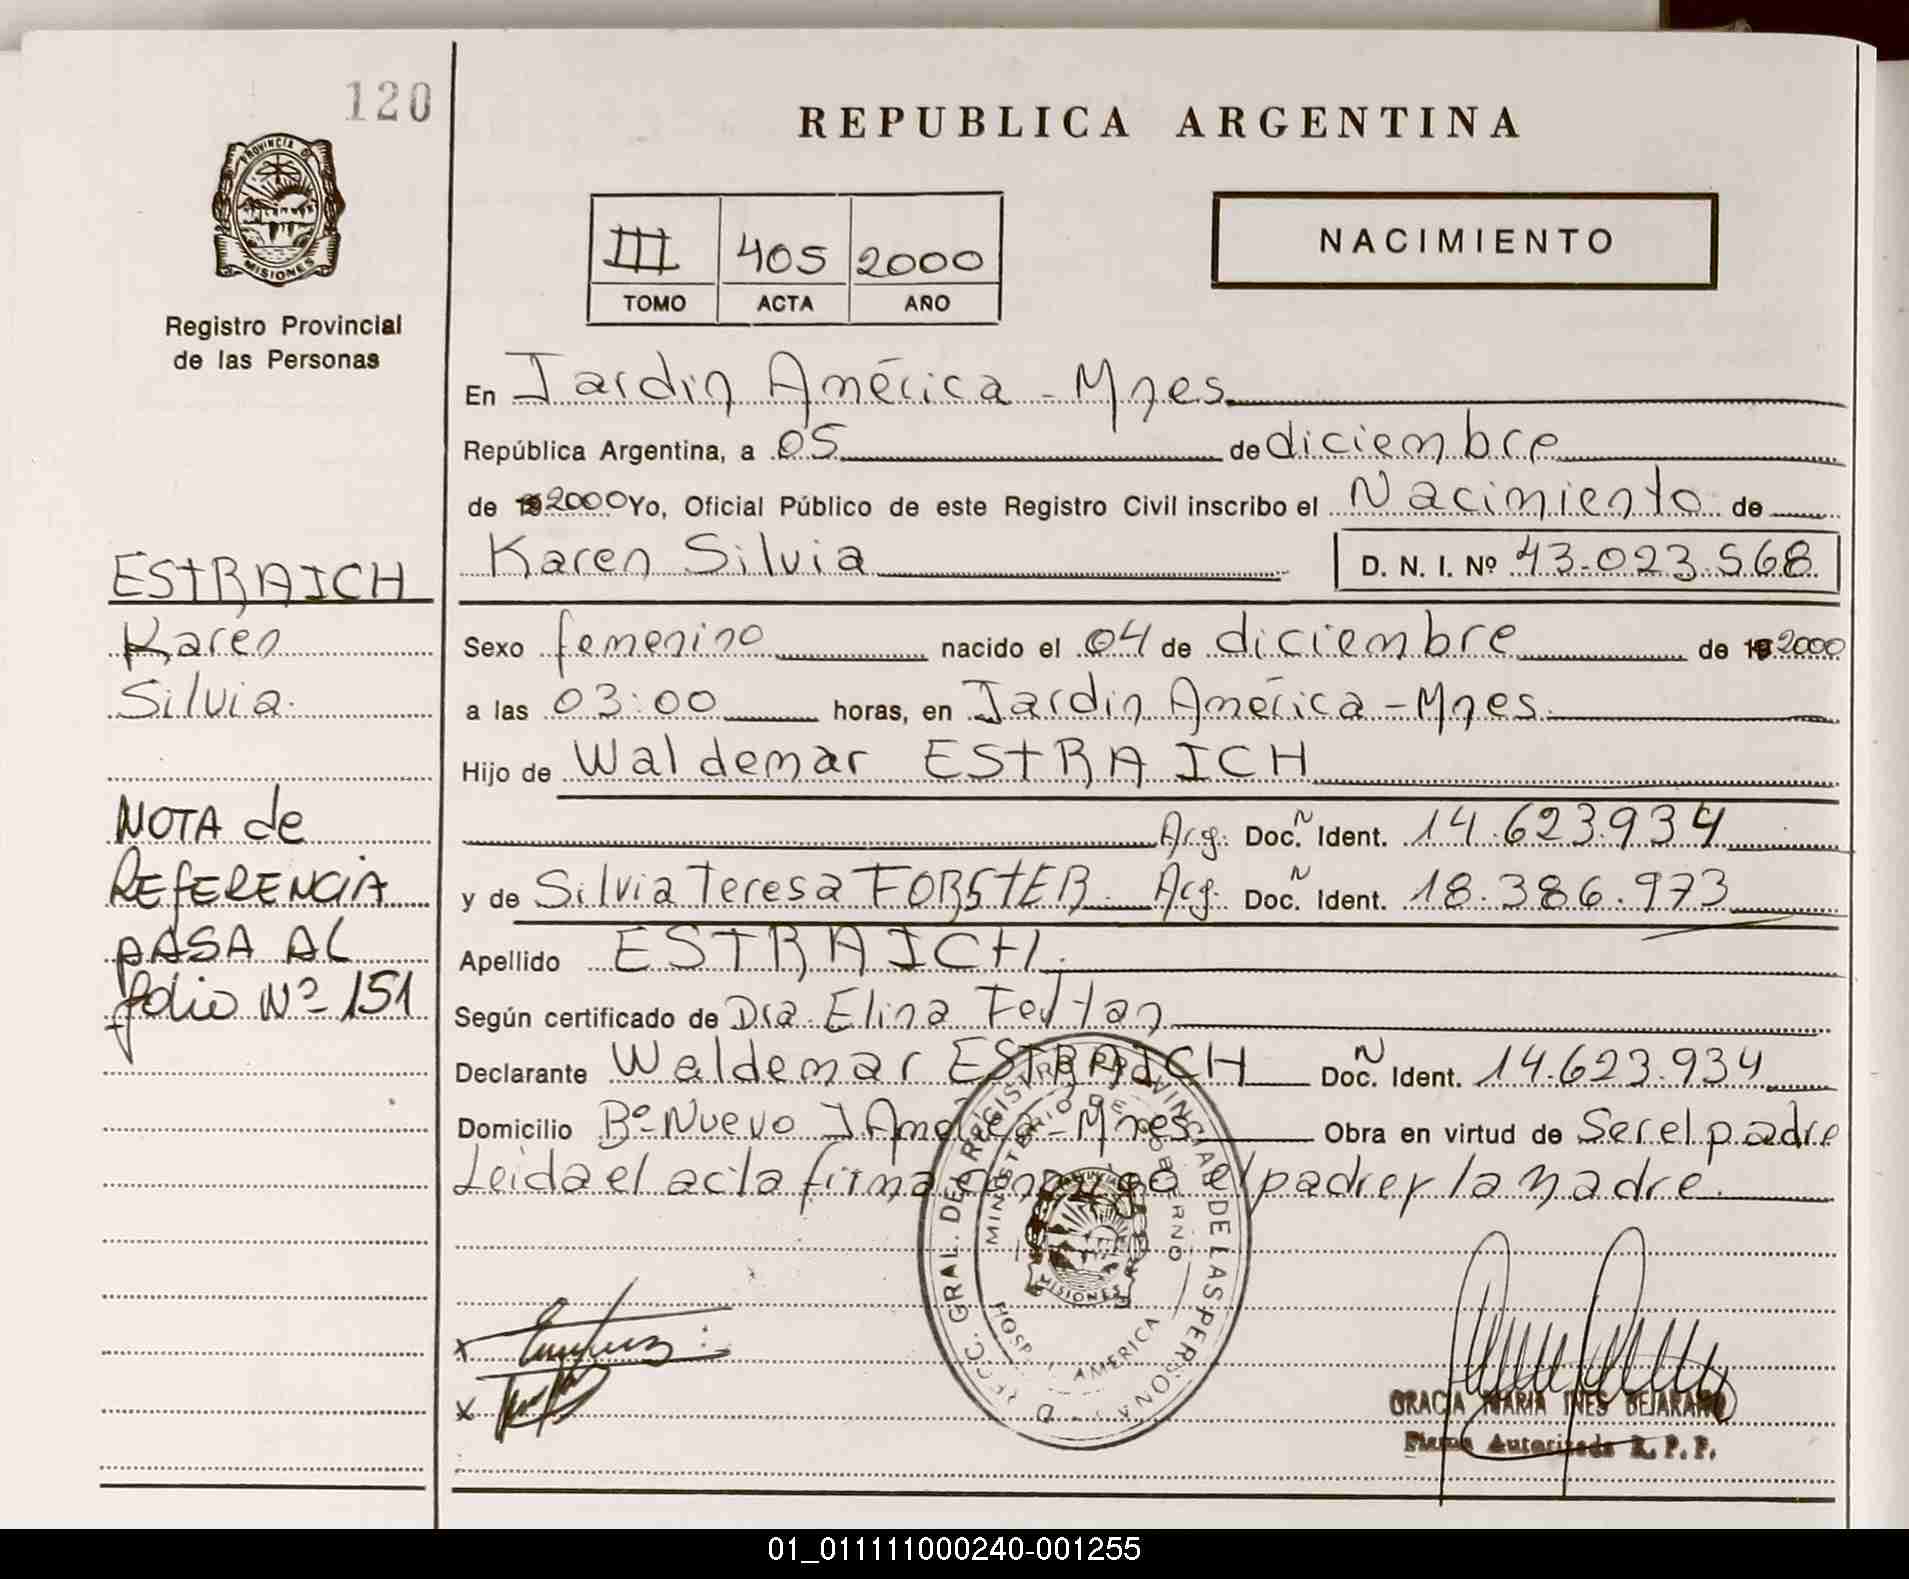 120
PROVINCIA DE
MISIONES
Registro Provincial
de las Personas
REPUBLICA ARGENTINA
III 405 2000
TOMO ACTA AÑO
NACIMIENTO
En Jardin América - Mnes
República Argentina, a 05 de diciembre
de 19 2000 Yo, Oficial Público de este Registro Civil inscribo el Nacimiento de
Karen Silvia D. N. I. Nº 43.023.568
Sexo femenino nacido el 04 de diciembre de 19 2000
a las 03:00 horas, en Jardin América - Mnes.
Hijo de Waldemar ESTRAICH
Arg. Doc. N Ident. 14.623.934
y de Silvia Teresa FORSTER Arg. Doc. N Ident. 18.386.973
Apellido ESTRAICH.
Según certificado de Dra. Elina
Declarante Waldemar ESTRAICH Doc. N Ident. 14.623.934
Domicilio Bº Nuevo J América - Mnes Obra en virtud de Ser el padre
Leida el acta firma conmigo el padre y la madre.
ESTRAICH
Karen
Silvia.
NOTA de
REFERENCIA
PASA AL
folio Nº 151
DIRECC. GRAL. DEL REGISTRO PROVINCIAL DE LAS PERSONAS
MINISTERIO DE GOBIERNO
MISIONES
HOSP. J. AMERICA
x
x
GRACIA MARIA INES BEJARANO
Firma Autorizada R. P. P.
01_011111000240-001255